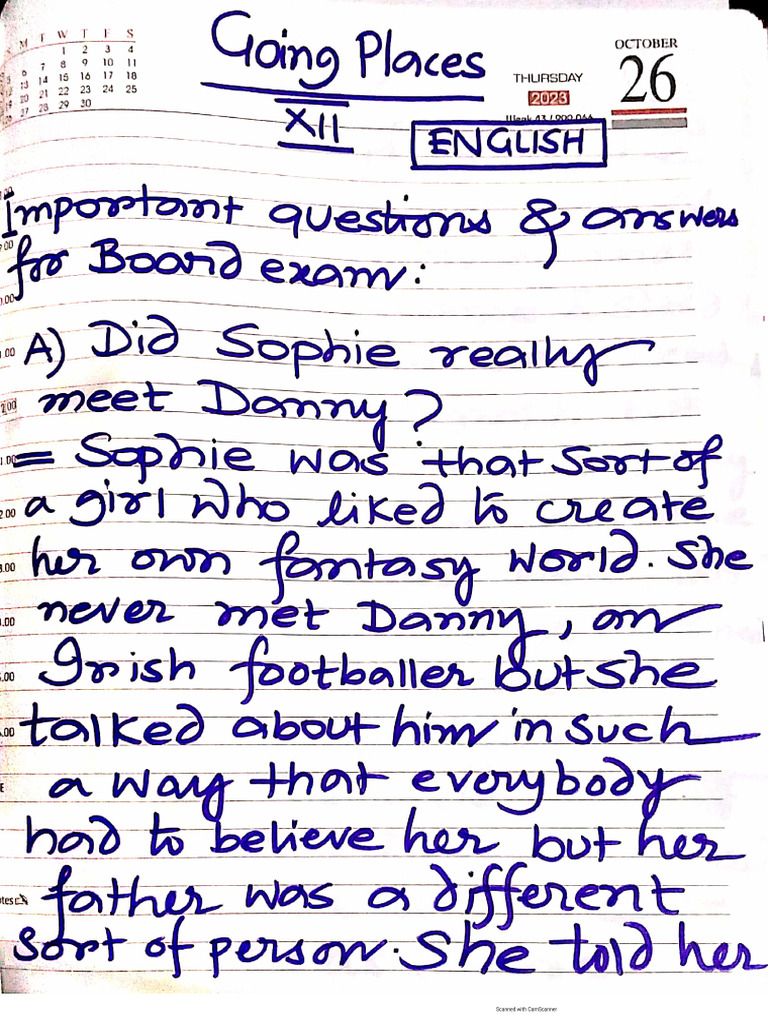 Going Places
M T W T F S
1 2 3 4
6 7 8 9 10 11
13 14 15 16 17 18
20 21 22 23 24 25
27 28 29 30
THURSDAY
2023
OCTOBER
26
XII
ENGLISH
Important questions & answers
for Board exam:
A) Did Sophie really
meet Danny?
= Sophie was that sort of
a girl who liked to create
her own fantasy world. She
never met Danny, an
Irish footballer but she
talked about him in such
a way that everybody
had to believe her but her
father was a different
sort of person. She told her
Scanned with CamScanner